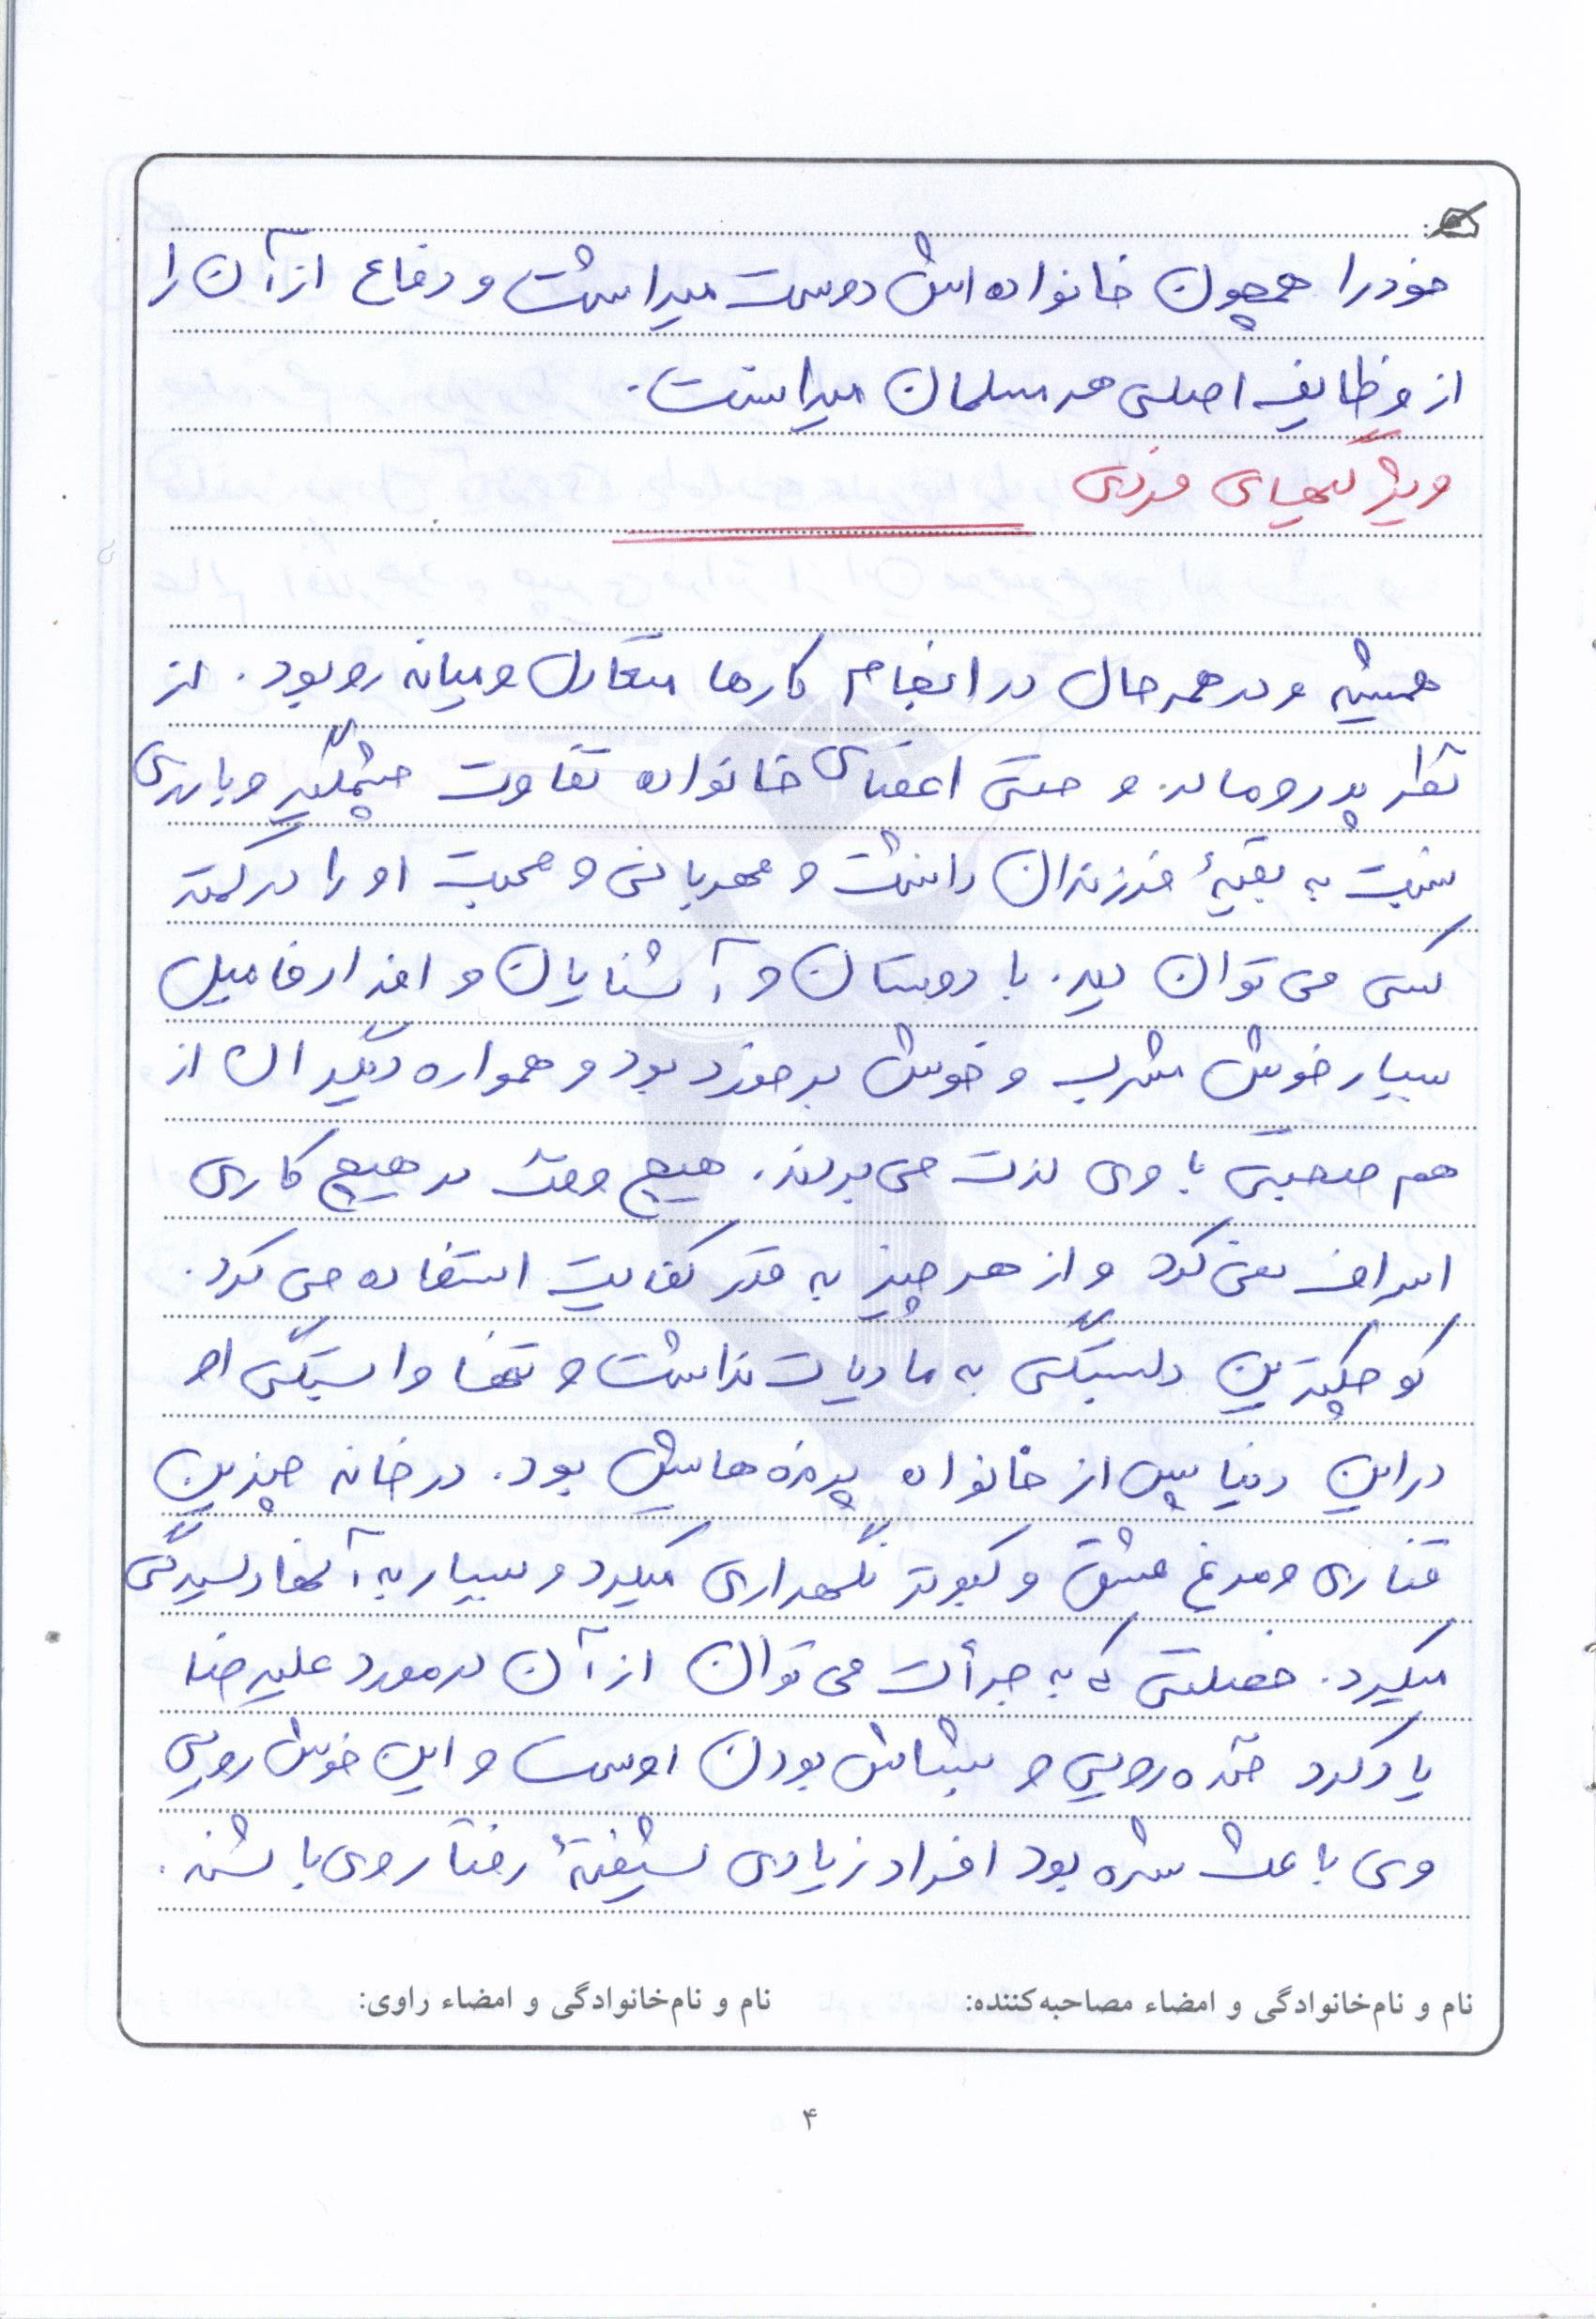 خود را همچون خانواده اش دوست میداشت و دفاع از آن را
از وظایف اصلی هر مسلمان میدانست.
ویژگیهای فردی
همیشه و در همه حال در انجام کارها متعادل و میانه رو بود. از
نظر پدر و مادر و حتی اعضای خانواده تفاوت چشمگیر و بارزی
نسبت به بقیهٔ فرزندان داشت و مهربانی و محبت او را در کمتر
کسی می توان دید. با دوستان و آشنایان و افراد فامیل
بسیار خوش مشرب و خوش برخورد بود و همواره دیگران از
هم صحبتی با وی لذت می بردند. هیچ وقت در هیچ کاری
اسراف نمی کرد و از هر چیز به قدر کفایت استفاده می کرد.
کوچکترین دلبستگی به مادیات نداشت و تنها وابستگی او
در این دنیا پس از خانواده پرنده هایش بود. در خانه چندین
قناری و مرغ عشق و کبوتر نگهداری میکرد و بسیار به آنها رسیدگی
میکرد. خصلتی که به جرأت می توان از آن در مورد علیرضا
یاد کرد خنده رویی و بشاش بودن اوست و این خوش رویی
وی باعث شده بود افراد زیادی شیفتهٔ رفتار وی باشند.
نام و نام‌خانوادگی و امضاء مصاحبه‌کننده: نام و نام‌خانوادگی و امضاء راوی:
۴